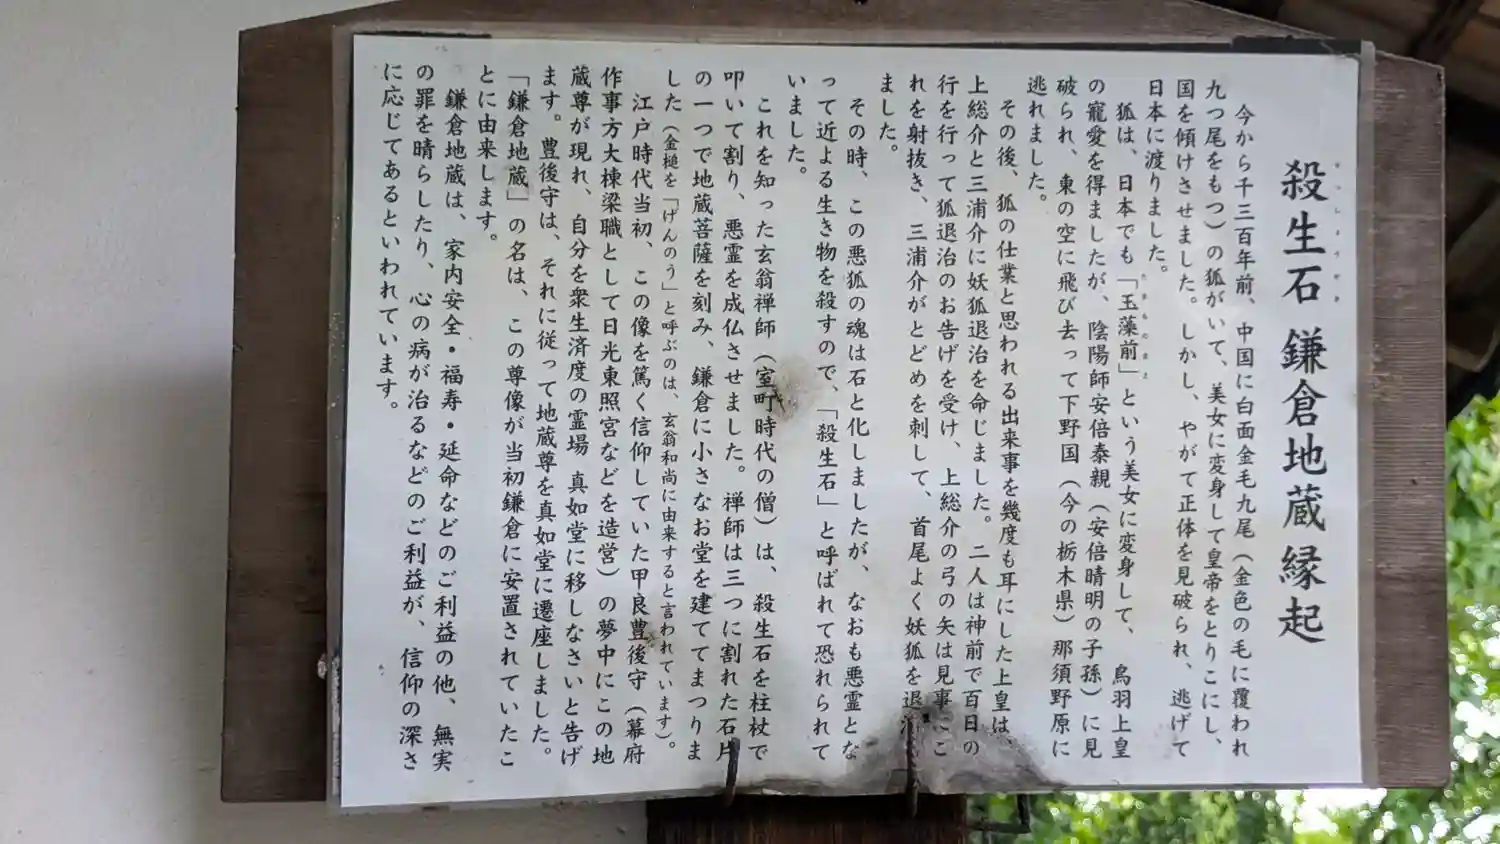 殺生石 鎌倉地蔵縁起
今から千三百年前、中国に白面金毛九尾（金色の毛に覆われ
九つ尾をもつ）の狐がいて、美女に変身して皇帝をとりこにし、
国を傾けさせました。しかし、やがて正体を見破られ、逃げて
日本に渡りました。
狐は、日本でも「玉藻前」という美女に変身して、鳥羽上皇
の寵愛を得ましたが、陰陽師安倍泰親（安倍晴明の子孫）に見
破られ、東の空に飛び去って下野国（今の栃木県）那須野原に
逃れました。
その後、狐の仕業と思われる出来事を幾度も耳にした上皇は、
上総介と三浦介に妖狐退治を命じました。二人は神前で百日の
行を行って狐退治のお告げを受け、上総介の弓の矢は見事にこ
れを射抜き、三浦介がとどめを刺して、首尾よく妖狐を退
ました。
その時、この悪狐の魂は石と化しましたが、なおも悪霊とな
って近よる生き物を殺すので、「殺生石」と呼ばれて恐れられて
いました。
これを知った玄翁禅師（室町時代の僧）は、殺生石を柱杖で
叩いて割り、悪霊を成仏させました。禅師は三つに割れた石片
の一つで地蔵菩薩を刻み、鎌倉に小さなお堂を建ててまつりま
した（金槌を「げんのう」と呼ぶのは、玄翁和尚に由来すると言われています）。
江戸時代当初、この像を篤く信仰していた甲良豊後守（幕府
作事方大棟梁職として日光東照宮などを造営）の夢中にこの地
蔵尊が現れ、自分を衆生済度の霊場 真如堂に移しなさいと告げ
ます。豊後守は、それに従って地蔵尊を真如堂に遷座しました。
「鎌倉地蔵」の名は、この尊像が当初鎌倉に安置されていたこ
とに由来します。
鎌倉地蔵は、家内安全・福寿・延命などのご利益の他、無実
の罪を晴らしたり、心の病が治るなどのご利益が、信仰の深さ
に応じてあるといわれています。